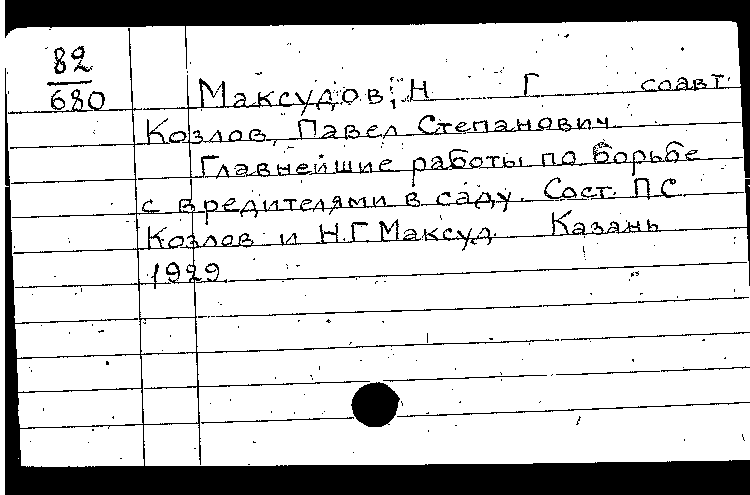 82
680
Максудов, Н Г соавт.
Козлов, Павел Степанович
Главнейшие работы по борьбе
с вредителями в саду. Сост. П.С.
Козлов и Н.Г. Максуд. Казань
1929